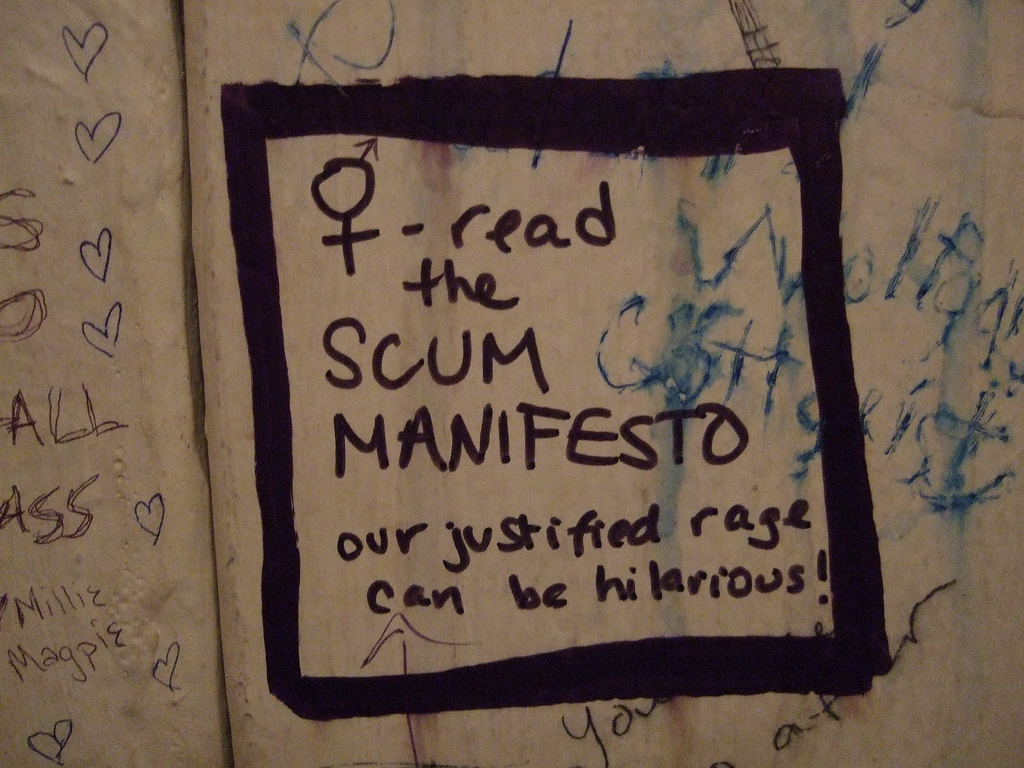 ⚥ - read
the
SCUM
MANIFESTO
our justified rage
can be hilarious!
ALL
ASS
Millie
Magpie
You